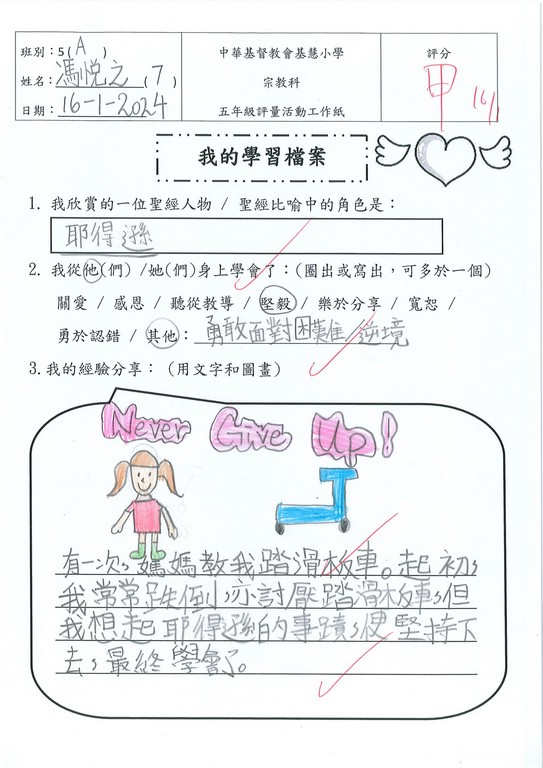 班別：5(A)
中華基督教會基慧小學
評分
姓名：馮悅之(7)
宗教科
甲
日期：16-1-2024
五年級評量活動工作紙
我的學習檔案
1. 我欣賞的一位聖經人物 / 聖經比喻中的角色是：
耶得遜
2. 我從他(們) /她(們)身上學會了：(圈出或寫出，可多於一個)
關愛 / 感恩 / 聽從教導 / 堅毅 / 樂於分享 / 寬恕 /
勇於認錯 / 其他：勇敢面對困難/逆境
3.我的經驗分享：(用文字和圖畫)
Never Give Up!
有一次，媽媽教我踏滑板車。起初，
我常常跌倒，亦討厭踏滑板車，但
我想起耶得遜的事蹟，便堅持下
去，最終學會了。